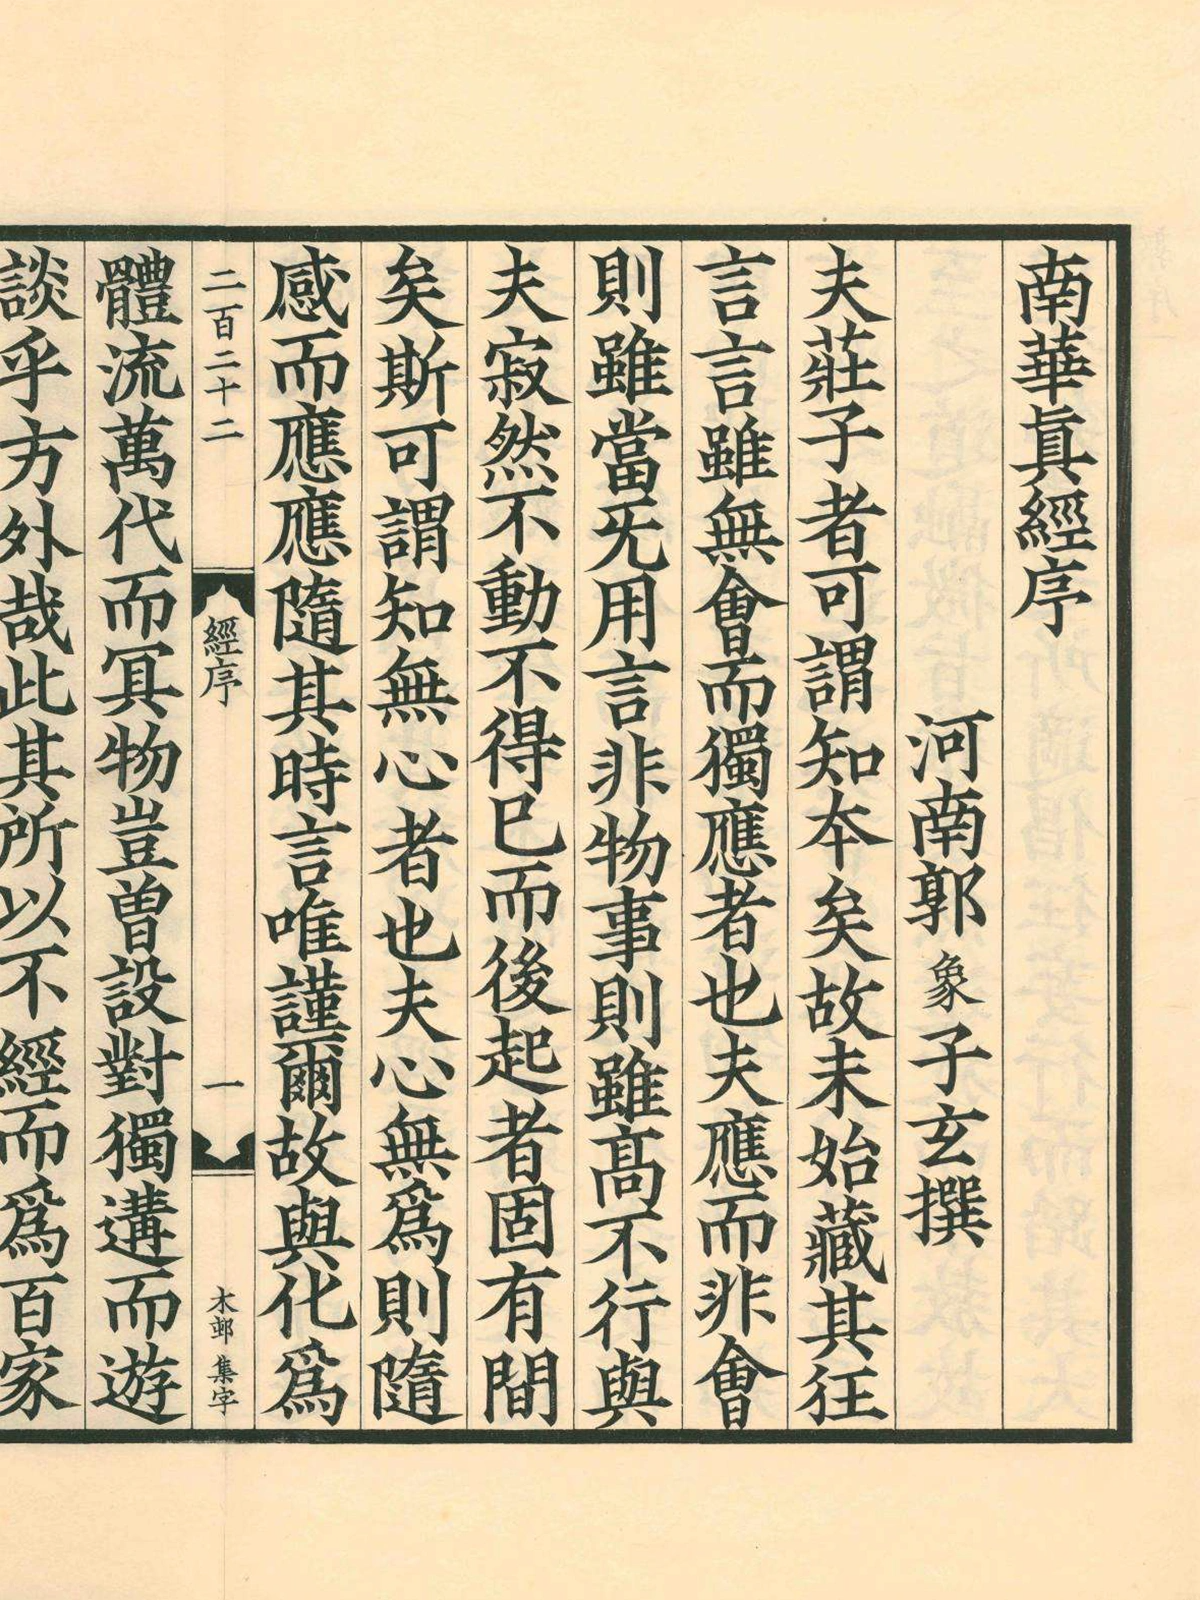 南華眞經序
河南郭象子玄撰
夫莊子者可謂知本矣故未始藏其狂
言言雖無會而獨應者也夫應而非會
則雖當无用言非物事則雖高不行與
夫寂然不動不得已而後起者固有間
矣斯可謂知無心者也夫心無爲則隨
感而應應隨其時言唯謹爾故與化爲
二百二十二
經序
一
木邮集字
體流萬代而冥物豈曽設對獨遘而遊
談乎方外哉此其所以不經而爲百家